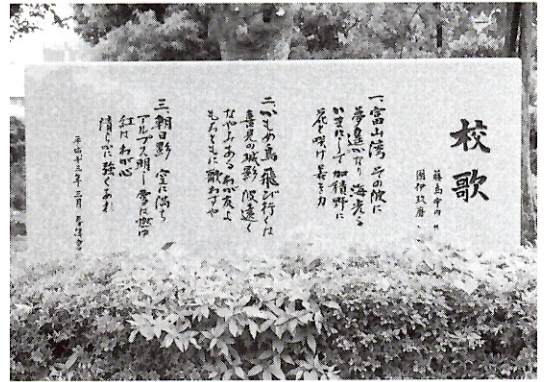 校歌
藤島宇内
團伊玖磨
一、富山湾 その波に
夢遥かなり 海光る
いまにして 加積野に
花と咲け 若き力
二、かもめ鳥 飛び行くは
喜見の城影 波遠く
なやみあるわが友よ
もろともに歌わずや
三、朝日影 空に満ち
アルプス明し 雪は燃ゆ
紅は わが心
清らかに強くあれ
平成十三年三月